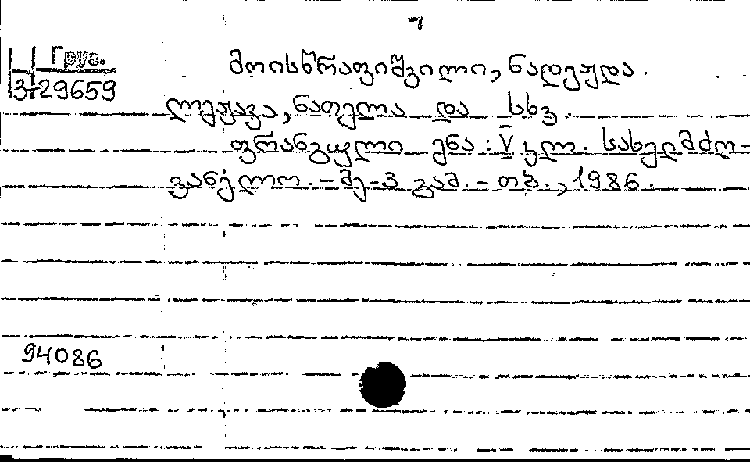 Груз.
3-29659
მოისწრაფიშვილი, ნადეჟდა.
ლეჟავა, ნათელა და სხვ.
ფრანგული ენა: V კლ. სახელმძღ-
ვანელო. - მე-3 გამ. - თბ., 1986.
94086